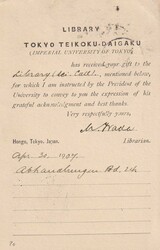 LIBRARY
OF
TOKYO TEIKOKU-DAIGAKU
(IMPERIAL UNIVERSITY OF TOKYO)
has received your gift to the
Library, mentioned below,
for which I am instructed by the President of the
University to convey to you the expression of his
grateful acknowledgment and best thanks.
Very respectfully yours,
M. Wada
Hongo, Tokyo, Japan. Librarian.
Apr. 20, 1907
Abhandlungen Bd. 24